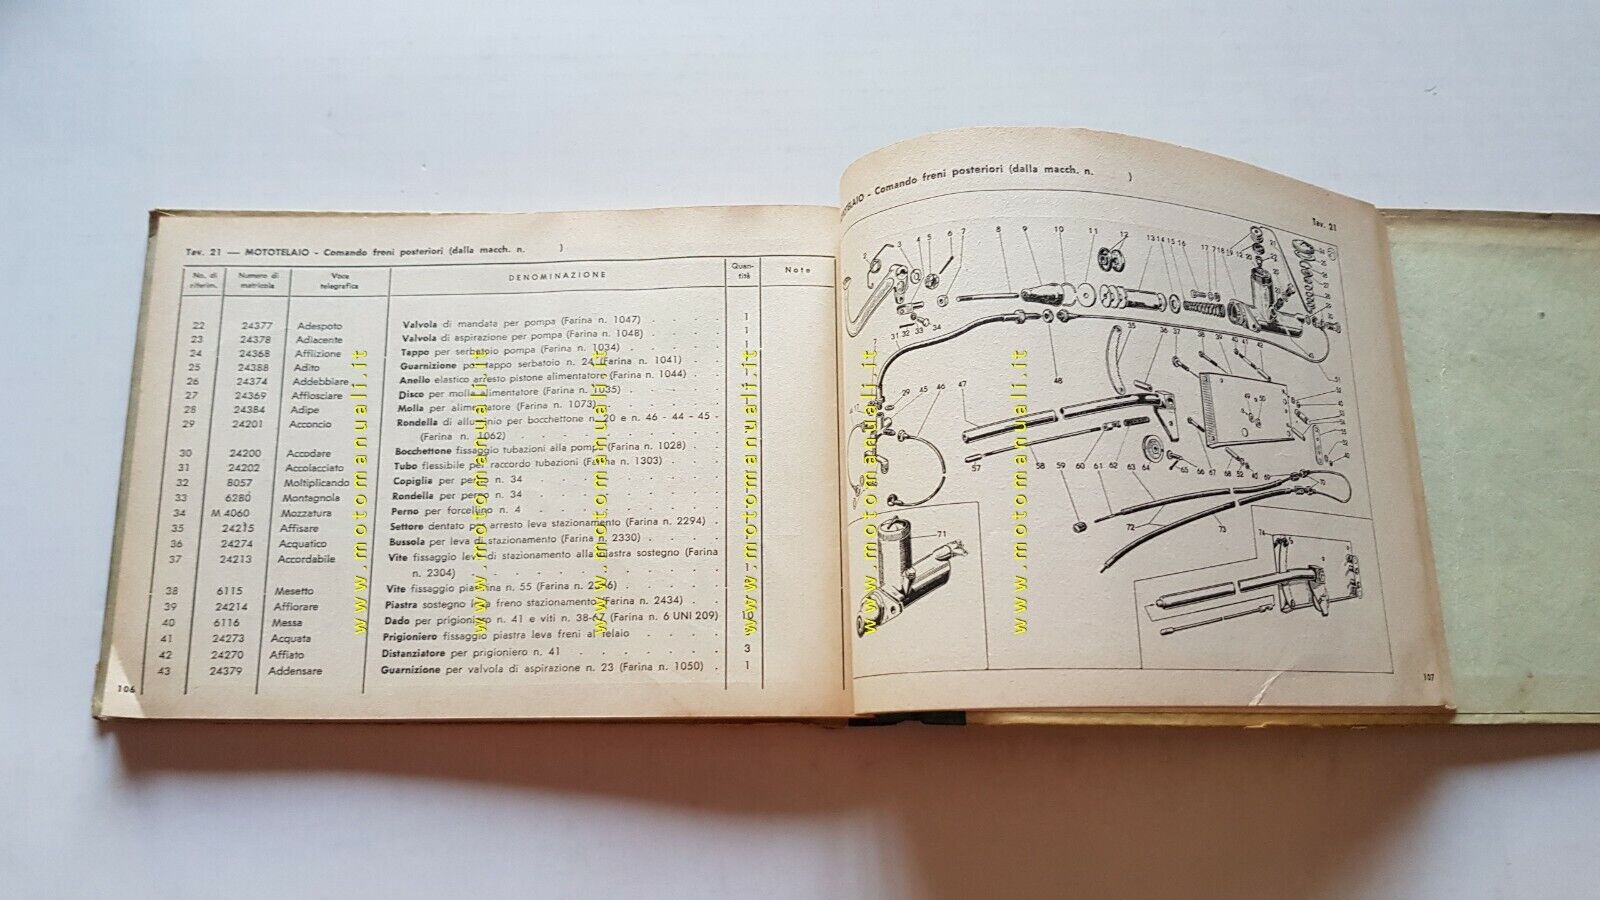 Tav. 21 — MOTOTELAIO - Comando freni posteriori (dalla macch. n. )
No. di riferim. Numero di matricola Voce telegrafica DENOMINAZIONE Quan-tità Note
22 24377 Adespoto Valvola di mandata per pompa (Farina n. 1047) . . . . 1
23 24378 Adiacente Valvola di aspirazione per pompa (Farina n. 1048) . . . 1
24 24368 Afflizione Tappo per serbatoio pompa (Farina n. 1034) . . . .
25 24388 Adito Guarnizione per tappo serbatoio n. 24 (Farina n. 1041) . . . 1
26 24374 Addebbiare Anello elastico arresto pistone alimentatore (Farina n. 1044) . 1
27 24369 Afflosciare Disco per molla alimentatore (Farina n. 1035) . . . .
28 24384 Adipe Molla per alimentatore (Farina n. 1073) . . . . .
29 24201 Acconcio Rondella di alluminio per bocchettone n. 20 e n. 46 - 44 - 45 -
(Farina n. 1062) . . . . . . . .
30 24200 Accodare Bocchettone fissaggio tubazioni alla pompa (Farina n. 1028) .
31 24202 Accolacciato Tubo flessibile per raccordo tubazioni (Farina n. 1303) . .
32 8057 Moltiplicando Copiglia per perno n. 34 . . . . . . .
33 6280 Montagnola Rondella per perno n. 34 . . . . . . .
34 M 4060 Mozzatura Perno per forcellino n. 4 . . . . . . .
35 24215 Affisare Settore dentato per arresto leva stazionamento (Farina n. 2294) .
36 24274 Acquatico Bussola per leva di stazionamento (Farina n. 2330) . . .
37 24213 Accordabile Vite fissaggio leva di stazionamento alla piastra sostegno (Farina
n. 2304) . . . . . . . . . 1
38 6115 Mesetto Vite fissaggio piastrina n. 55 (Farina n. ) . . . .
39 24214 Affiorare Piastra sostegno leva freno stazionamento (Farina n. 2434) . .
40 6116 Messa Dado per prigioniero n. 41 e viti n. 38-67 (Farina n. 6 UNI 209) 10
41 24273 Acquata Prigioniero fissaggio piastra leva freni al telaio . .
42 24270 Affiato Distanziatore per prigioniero n. 41 . . . . . . 3
43 24379 Addensare Guarnizione per valvola di aspirazione n. 23 (Farina n. 1050) . 1
106
www.motomanuali.it
www.motomanuali.it
www.motomanuali.it
www.motomanuali.it
MOTOTELAIO - Comando freni posteriori (dalla macch. n. )
Tav. 21
2 3 4 5 6 7 8 9 10 11 12 13 14 15 16 17 7 18
31 32 33 34 35 36 37 38 39 40 41 42
7 29 45 46 47 48 49 50 51
57 58 59 60 61 62 63 64 65 66 67 68 52 69 70
71 72 73 74
107
www.motomanuali.it
www.motomanuali.it